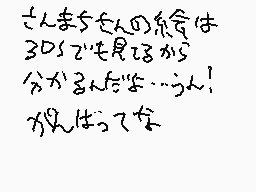 さんまちもんの絵は
3DSでも見てるから
分かるんだよ…うん!
がんばってな